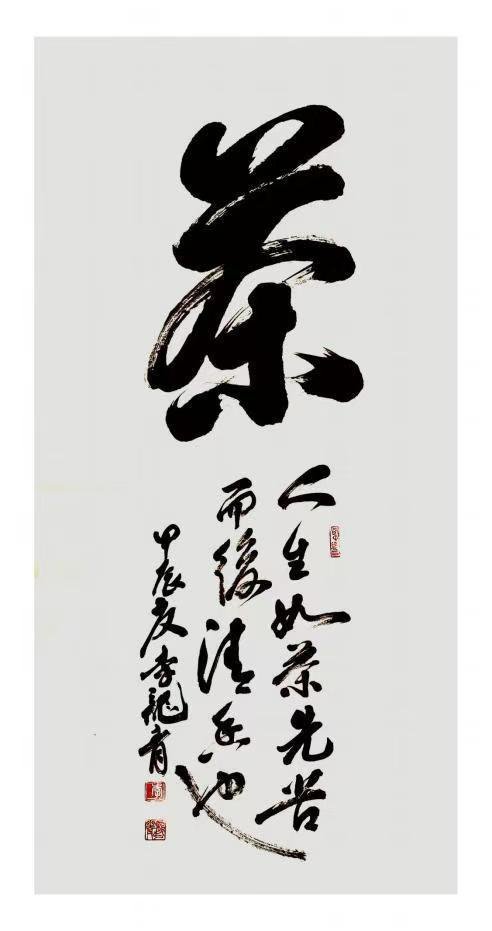 茶
人生如茶先苦
而後清香也
甲辰夏李龍